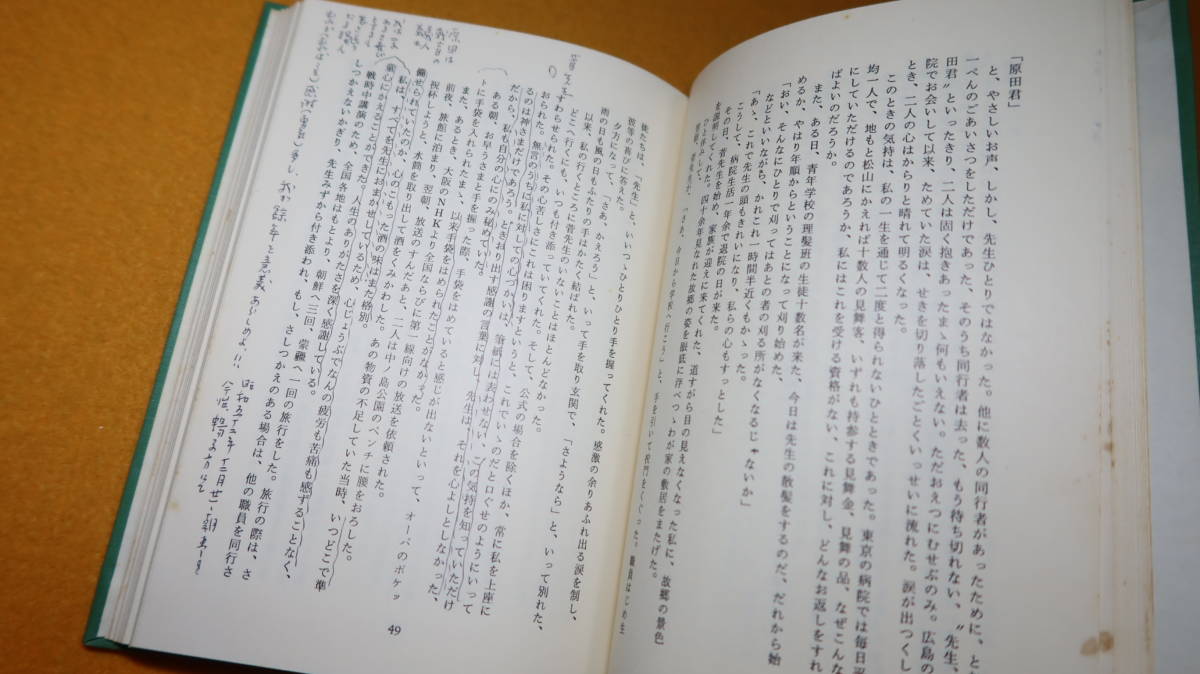 「原田君」
と、やさしいお声、しかし、先生ひとりではなかった。他に数人の同行者があったために、と
一ぺんのごあいさつをしただけであった。そのうち同行者は去った、もう待ち切れない、〝先生、
田君〟といったきり、二人は固く抱きあったまゝ何もいえない。ただおえつにむせぶのみ。広島の
院でお会いして以来、ためていた涙は、せきを切り落したごとくいっせいに流れた。涙が出つくし
とき、二人の心はからりと晴れて明るくなった。
このときの気持は、私の一生を通じて二度と得られないひとときであった。東京の病院では毎日平
均一人で、地もと松山にかえれば十数人の見舞客、いずれも持参する見舞金、見舞の品、なぜこんな
にしていただけるのであろうか、私にはこれを受ける資格がない、これに対し、どんなお返しをすれ
ばよいのだろうか。
また、ある日、青年学校の理髪班の生徒十数名が来た、今日は先生の散髪をするのだ、だれから始
めるか、やはり年順からということになって刈り始めた、
「おい、そんなにひとりで刈ってはあとの者の刈る所がなくなるじゃないか」
などといいながら、かれこれ一時間半近くもかゝった。
「あゝ、これで先生の頭もきれいになり、私らの心もすっとした」
こうして、病院生活一年余で退院の日が来た。
その日、菅先生を始め、家族が迎えに来てくれた、道すがら目の見えなくなった私に、故郷の景色
を説明してくれた。四十余年見なれた故郷の姿を眼底に浮べつゝわが家の敷居をまたげた。
「さあ、今日から学校へ行こう」と、手を引いて校門をくぐった。職員はじめ生
徒たちは、「先生」と、いいつゝひとりひとり手を握ってくれた。感激の余りあふれ出る涙を制し、
彼等の喜びに答えた。
夕方になって、「さあ、かえろう」と、いって手を取り玄関で、「さようなら」と、いって別れた、
雨の日も風の日もふたりの手はかたく結ばれた。
以来、私の行くところに菅先生のいないことはほとんどなかった。
どこへ行くにも、いつも付き添っていてくれた。そして、公式の場合を除くほか、常に私を上座に
すわらせられた。その心苦しさにこれは困りますというと、これでいゝのだと口ぐせのようにいって
おられた。無言のうちに私に対しての心づかいは、筆紙には表わせない、この気持を知っていただけ
るのは神さまだけであろう。ときおり出す感謝の言葉に対し、先生は、それを心よしとしなかった、
だから、私も自分の心にのみ秘めていた。
ある朝、お早うさまと手を握った際、手袋をはめていると感じが出ないといって、オーバのポケッ
トに手袋を入れられたまゝ、以来手袋をはめられたことがなかった。
また、あるとき、大阪のNHKより全国ならびに第一線向けの放送を依頼された。
前夜、旅館に泊まり、翌朝、放送のすんだあと、二人は中ノ島公園のベンチに腰をおろした。
祝杯しようと、水筒を取り出して酒をくみかわした。あの物資の不足していた当時、いつどこで準
備せられていたのか、心のこもった酒の味はまた格別。
私は、すべてを先生におまかせしているため、心じょうぶでなんの疲労も苦痛も感ずることなく、
童心にかえることができた。人生のありがたさを深く感謝している。
戦時中講演のため、全国各地はもとより、朝鮮へ三回、蒙疆へ一回の旅行をした。旅行の際は、さ
しつかえないかぎり、先生みずから付き添われ、もし、さしつかえのある場合は、他の職員を同行さ
49
原田は
菅先生